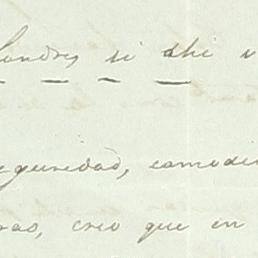 Londres si ahi
seguridad, comodi
creo que en